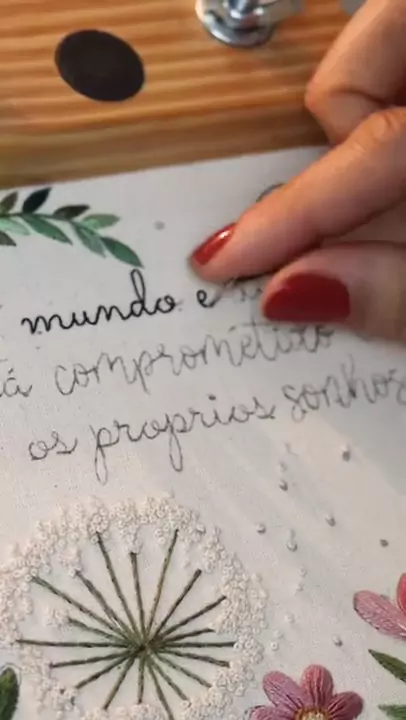 mundo e
tá comprometido
os proprios sonhos